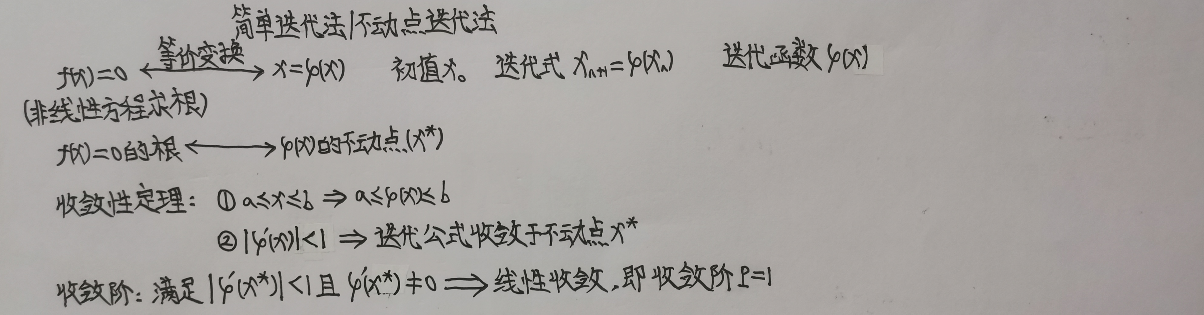 简单迭代法/不动点迭代法
f(x)=0 ⟷ 等价变换 x=φ(x) 初值x₀ 迭代式 xₙ₊₁=φ(xₙ) 迭代函数φ(x)
(非线性方程求根)
f(x)=0的根 ⟷ φ(x)的不动点(x*)
收敛性定理: ① a≤x≤b ⇒ a≤φ(x)≤b
② |φ'(x)|<1 ⇒ 迭代公式收敛于不动点x*
收敛阶: 满足|φ'(x*)|<1且φ'(x*)≠0 ⟹ 线性收敛,即收敛阶P=1